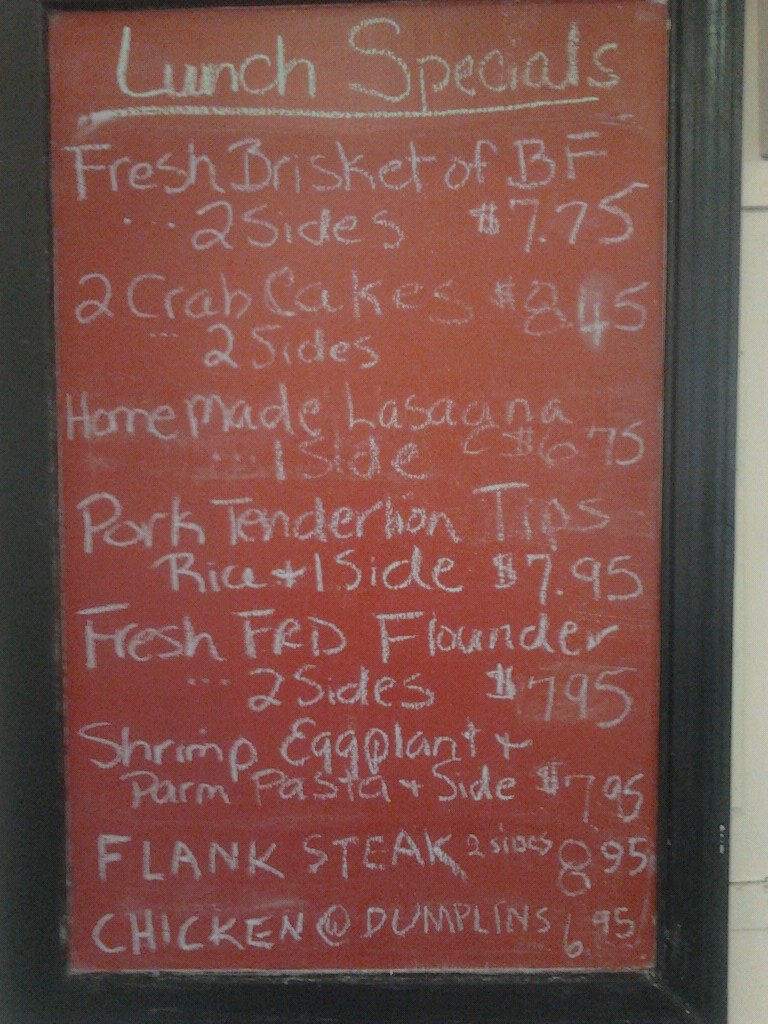 Lunch Specials
Fresh Brisket of BF
... 2 Sides $7.75
2 Crab Cakes $8.45
... 2 Sides
Homemade Lasagna
... 1 Side $6.75
Pork Tenderlion Tips
Rice + 1 Side $7.95
Fresh FRD Flounder
... 2 Sides $7.95
Shrimp Eggplant +
Parm Pasta + Side $7.95
FLANK STEAK 2 sides 8.95
CHICKEN @ DUMPLINS 6.95